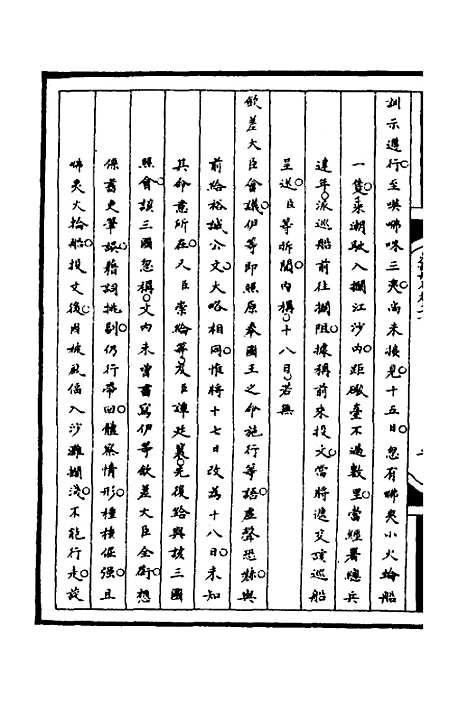 訓示遵行至㗸咈咪三夷尚未接見十五日忽有咈夷小火輪船
一隻乘潮駛入攔江沙內距礮臺不過數里當經署總兵
達年派巡船前往攔阻據稱前來投文當將遞交該巡船
呈送臣等拆閱內稱十八日若無
欽差大臣會議伊等即照原奉國王之命施行等語虛聲恐嚇與
前給裕誠公文大略相同惟將十七日改為十八日未知
其命意所在又臣崇綸等及臣譚廷襄先後給與該三國
照會該三國忽稱文內未曾書寫伊等欽差大臣全銜想
係舊吏筆誤藉詞挑剔仍行帶回體察情形種種倔强且
咈夷火輪船投文後因娬駛偪入沙灘攔淺不能行走旋